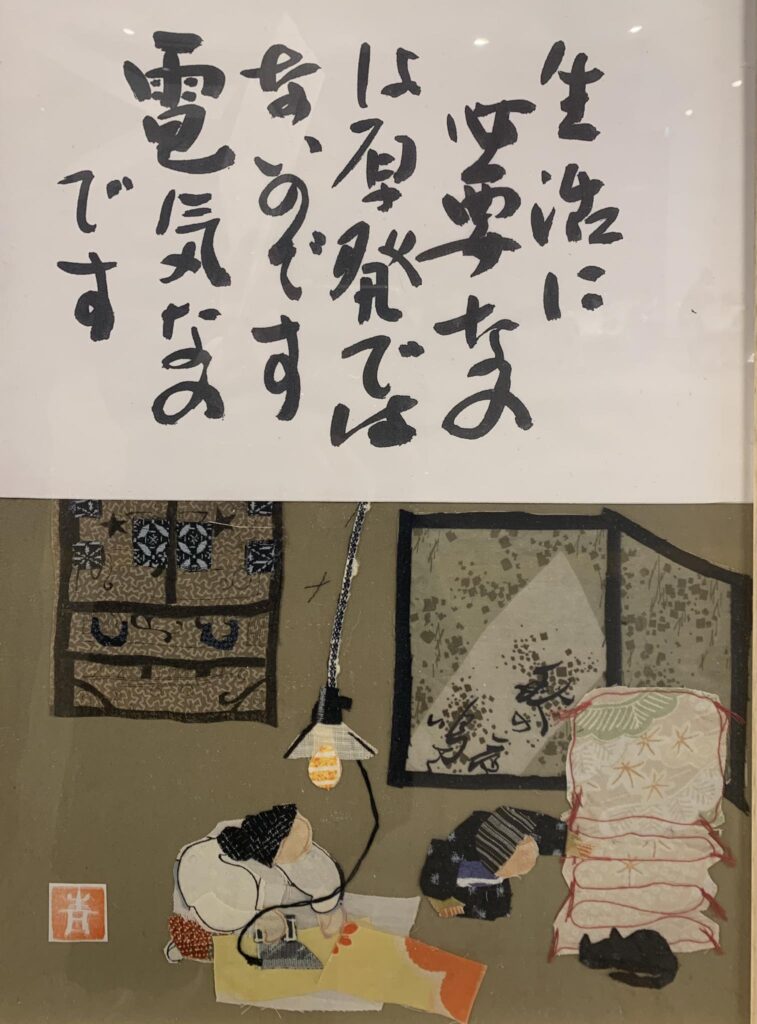 生活に
必要なの
は原発では
ないのです
電気なの
です